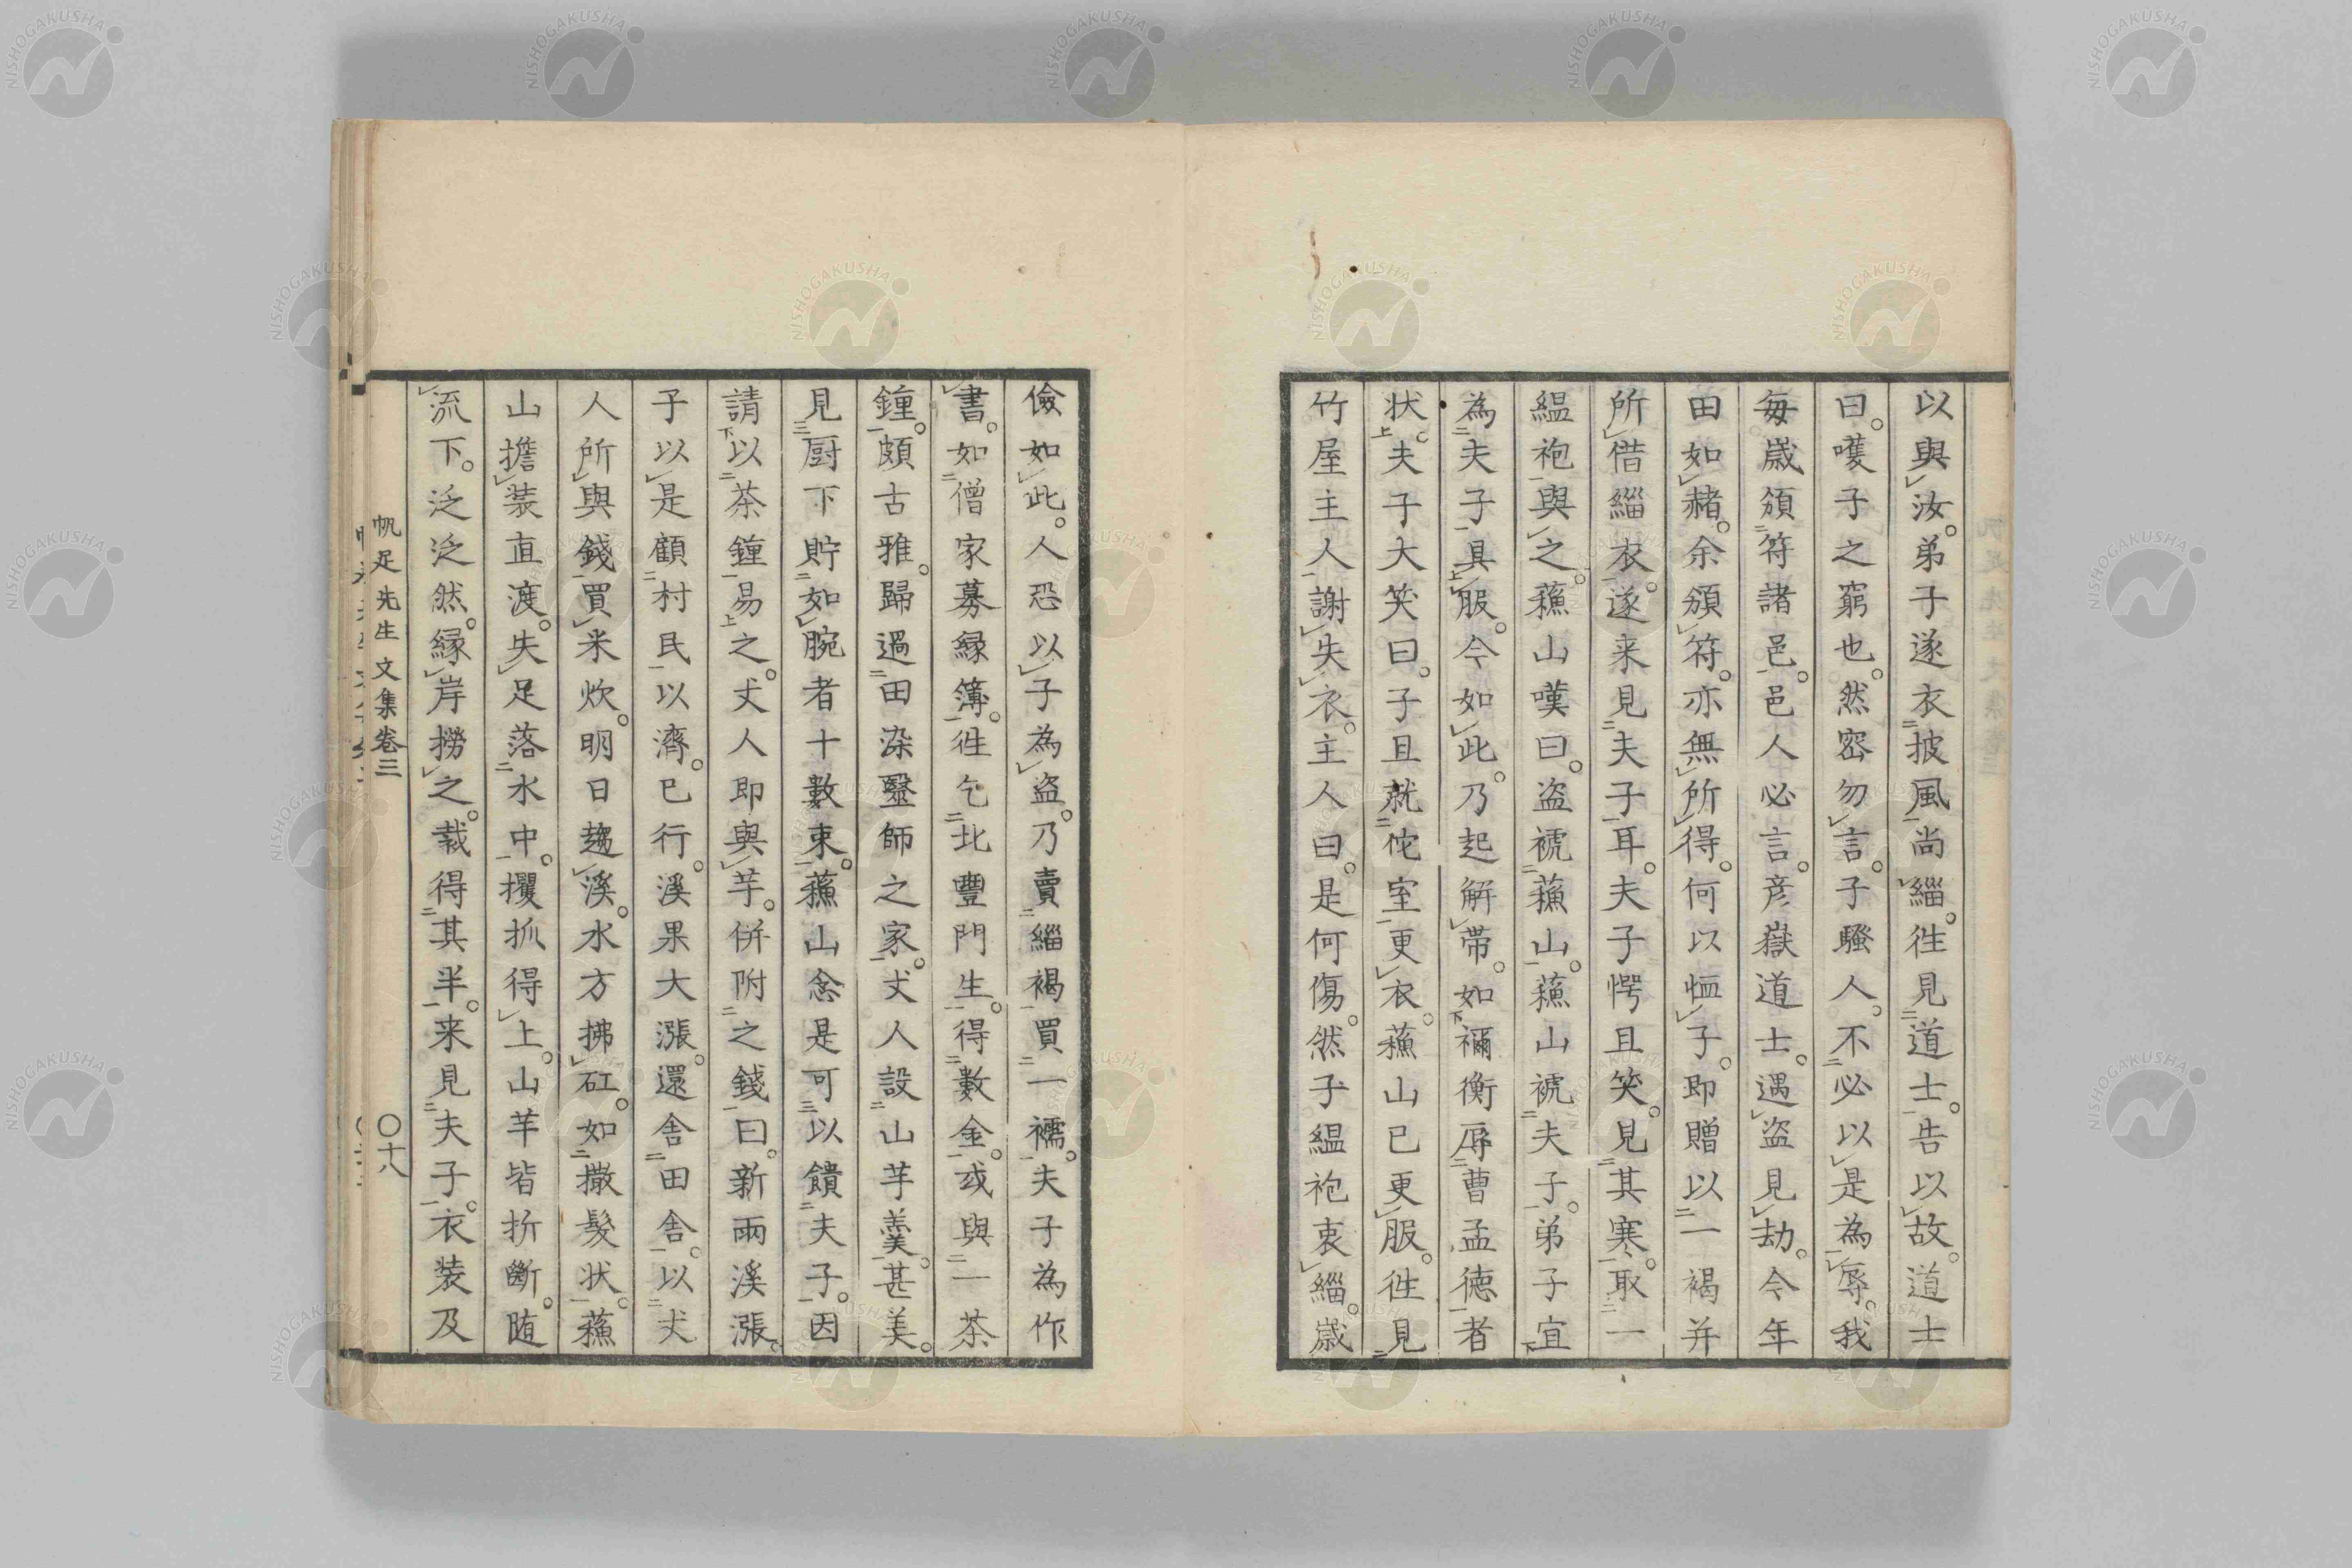 以與汝。弟子遂衣披風尚緇。徃見道士。告以故。道士
曰。嚄子之窮也。然密勿言。子騷人。不必以是為辱。我
毎歳頒符諸邑。邑人必言。彦嶽道士。遇盗見劫。今年
田如赭。余頒符。亦無所得。何以恤子。即贈以一褐并
所借緇衣。遂来見夫子耳。夫子愕且笑。見其寒。取一
緼袍與之。蘓山嘆曰。盗褫蘓山。蘓山褫夫子。弟子宜
為夫子具服。今如此。乃起解帯。如禰衡辱曹孟徳者
状。夫子大笑曰。子且就佗室更衣。蘓山已更服。徃見
竹屋主人謝失衣。主人曰。是何傷。然子緼袍表緇。歳
儉如此。人恐以子為盗。乃賣緇褐買一襦。夫子為作
書。如僧家募縁簿。徃乞北豐門生。得數金。或與一茶
鍾。頗古雅。歸過田染毉師之家。丈人設山芋羹。甚美。
見厨下貯如腕者十數束。蘓山念是可以饋夫子。因
請以茶鍾易之。丈人即與芋。併附之錢曰。新雨溪漲。
子以是顧村民以濟。已行。溪果大漲。還舎田舎。以丈
人所與錢買米炊。明日趨溪。水方拂矼。如撒髮状。蘓
山擔装直渡。失足落水中。攫抓得上。山芋皆折斷。随
流下。泛泛然。縁岸撈之。裁得其半。来見夫子。衣装及
帆足先生文集巻三
〇十八
NISHOGAKUSHA